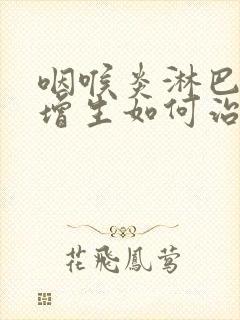 咽喉炎淋巴
增生如何治
花飛鳳莺